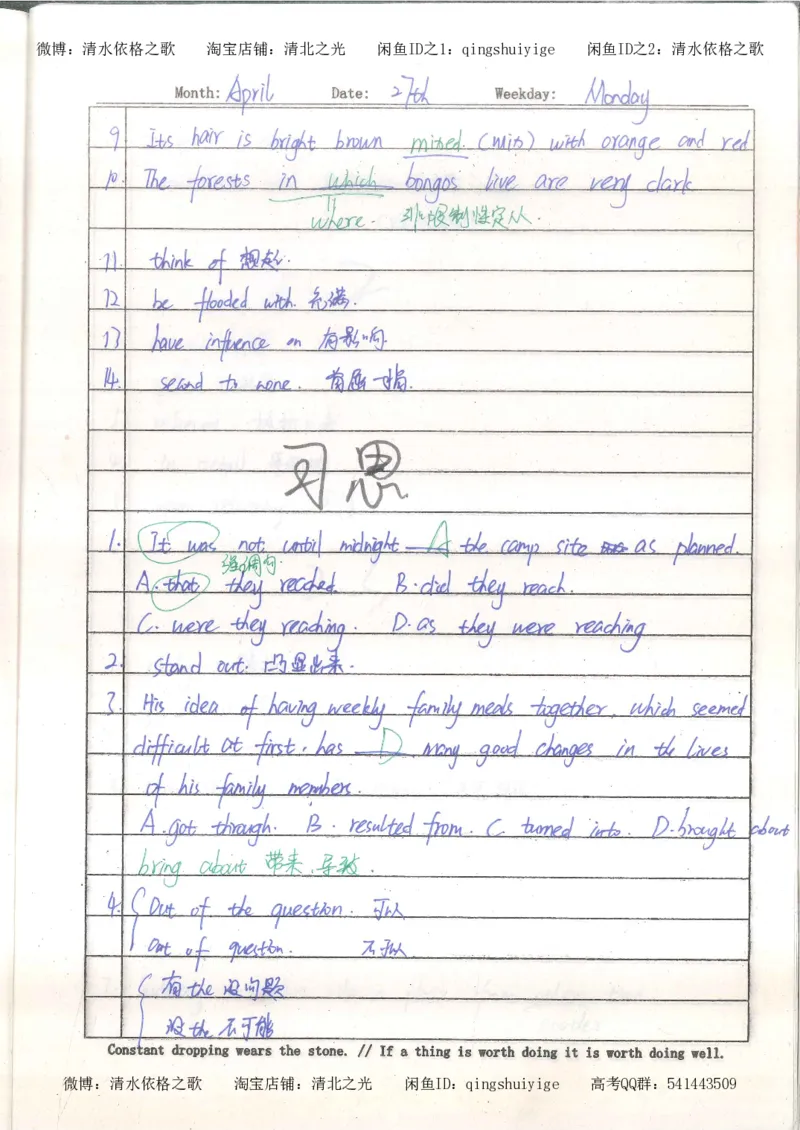 微博：清水依格之歌 淘宝店铺：清北之光 闲鱼ID之1：qingshuiyige 闲鱼ID之2：清水依格之歌
Month: April Date: 27th Weekday: Monday
9 Its hair is bright brown mixed (mix) with orange and red
10. The forests in which bongos live are very dark
where. 非限制性定从.
11. think of 想起.
12 be flooded with. 充满.
13 have influence on 有影响
14. second to none. 首屈一指.
习思
1. It was not until midnight A the camp site as planned.
强调句.
A. that they reached. B. did they reach.
C. were they reaching. D. as they were reaching
2. stand out. 凸显出来.
3. His idea of having weekly family meals together, which seemed
difficult at first, has D many good changes in the lives
of his family members.
A. got through. B. resulted from. C. turned into. D. brought about
bring about 带来, 导致.
4. Out of the question. 可以
Out of question. 不可以
有the 没问题
没the 不可能
Constant dropping wears the stone. // If a thing is worth doing it is worth doing well.
微博：清水依格之歌 淘宝店铺：清北之光 闲鱼ID：qingshuiyige 高考QQ群：541443509